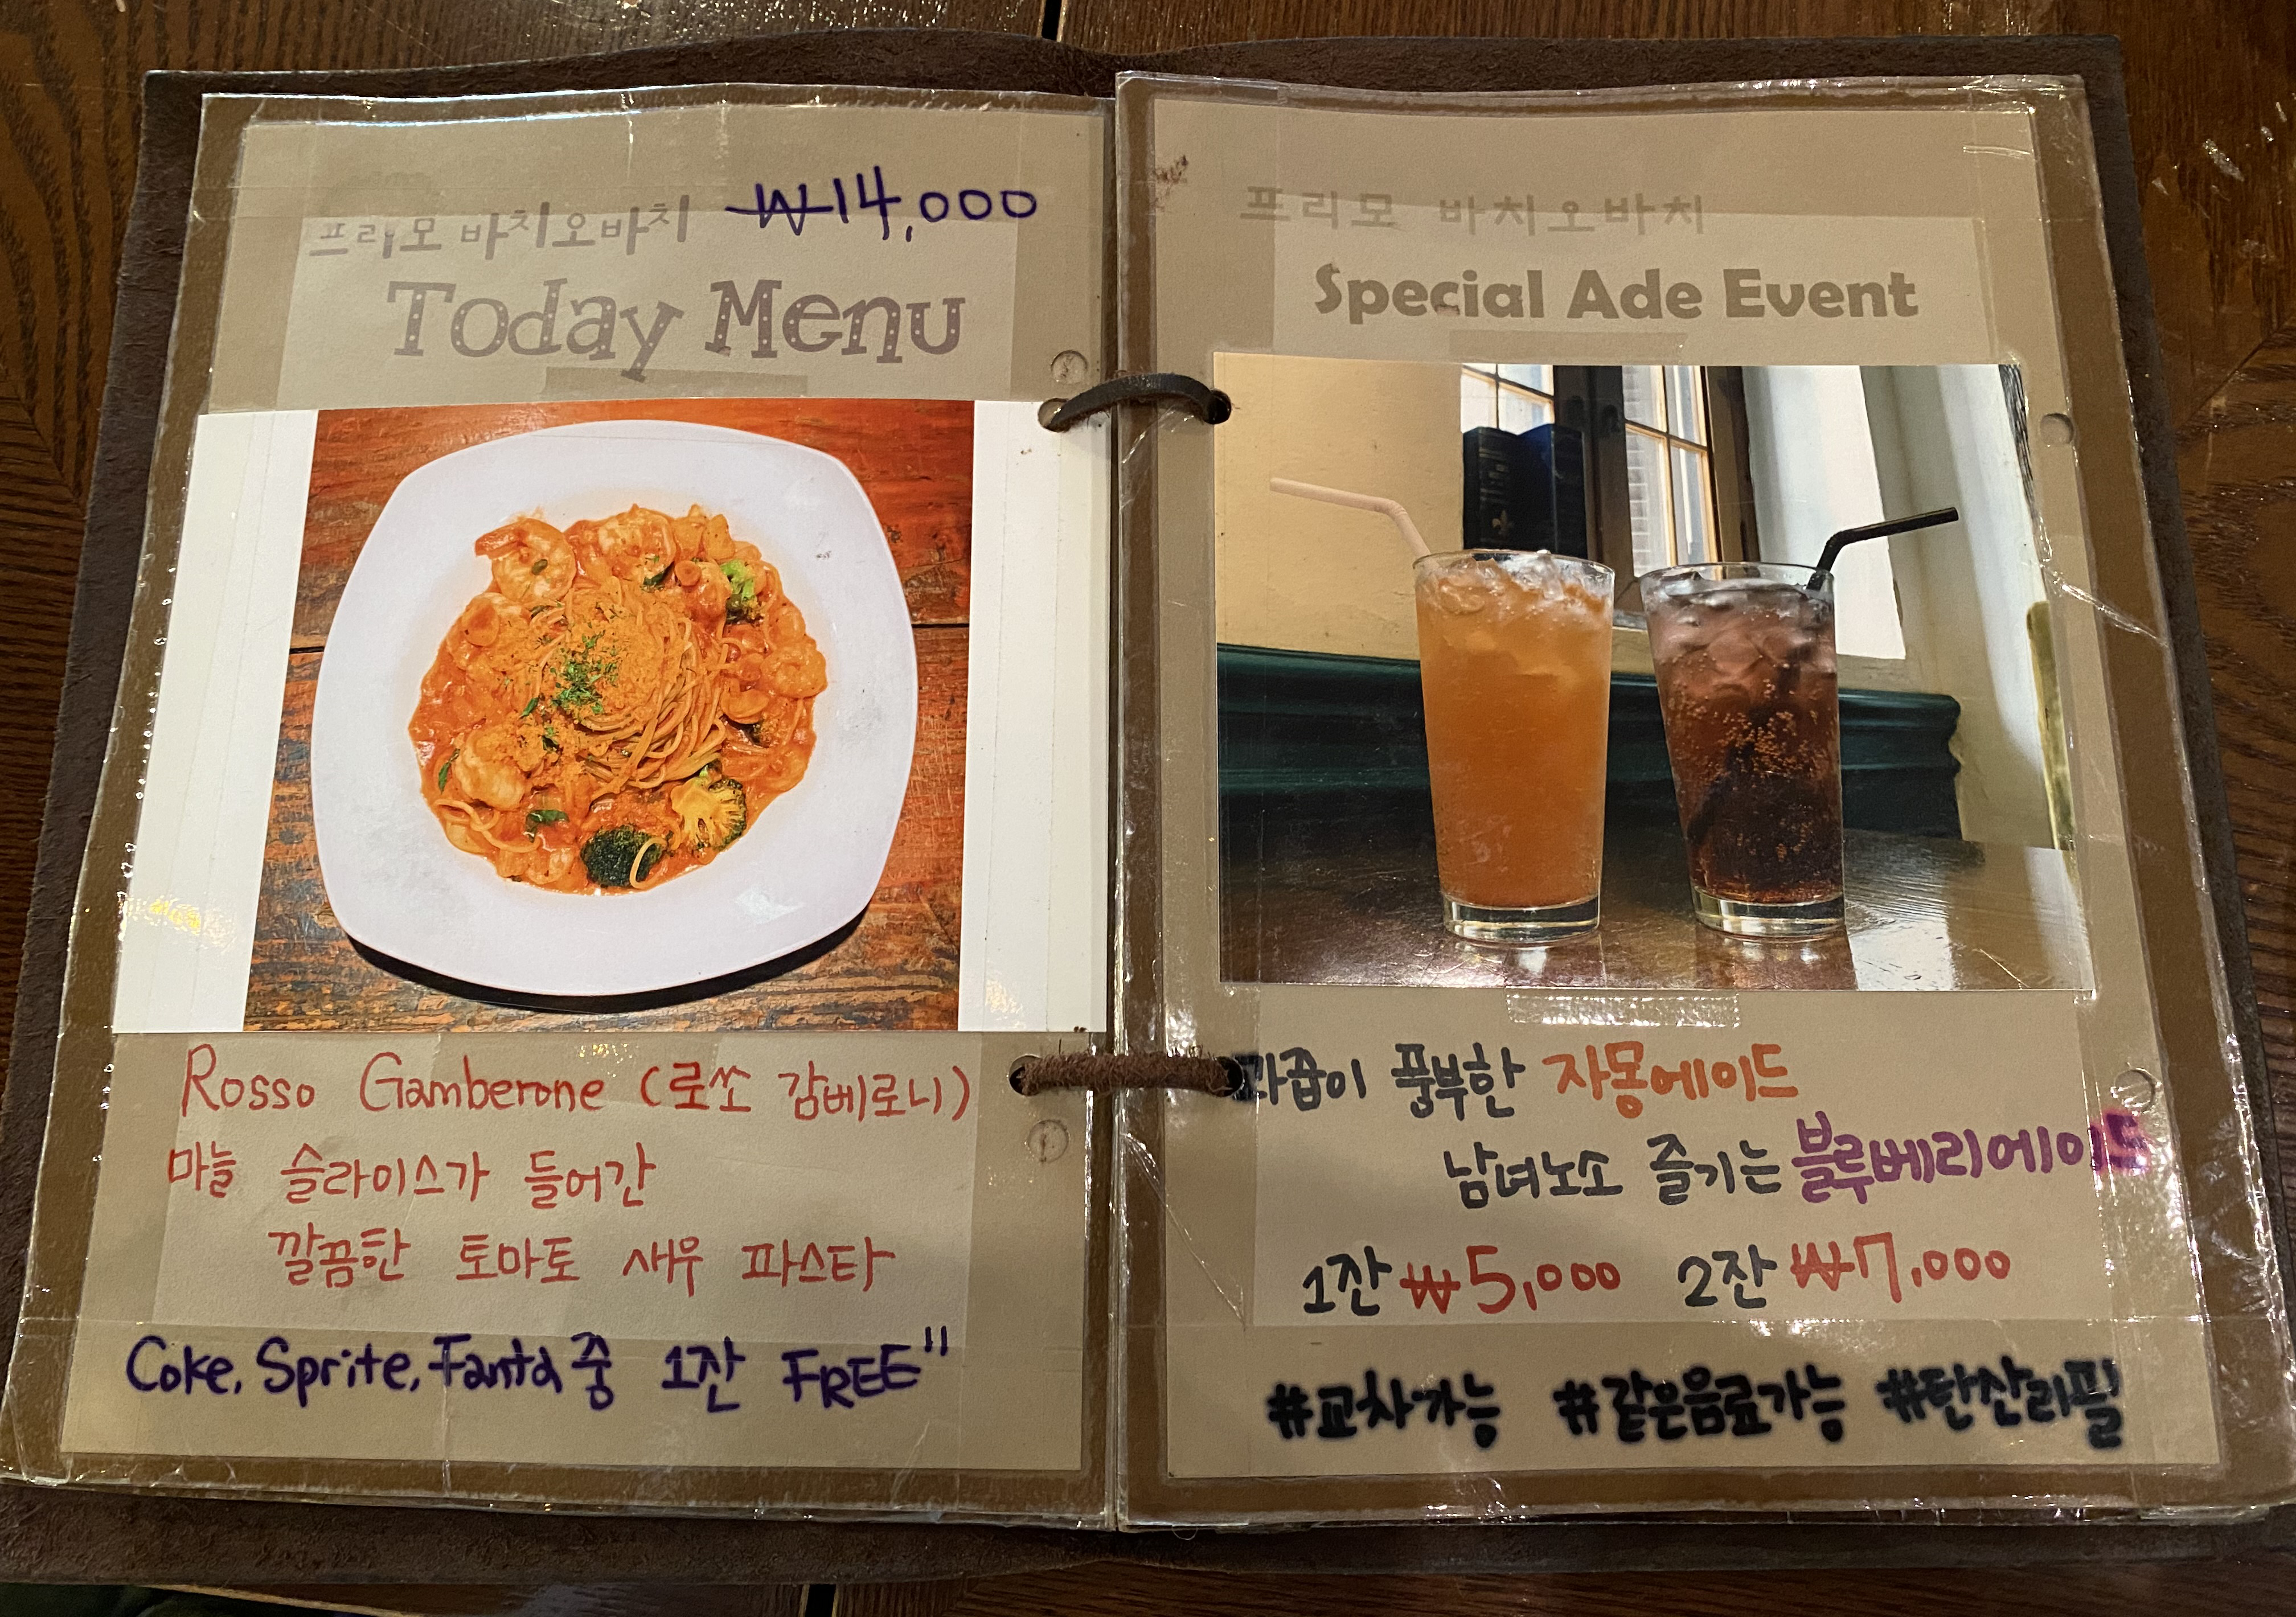 프리모 바치오바치 ₩14,000
Today Menu
Rosso Gamberone (로쏘 감베로니)
마늘 슬라이스가 들어간
깔끔한 토마토 새우 파스타
Coke, Sprite, Fanta 중 1잔 FREE"
프리모 바치오바치
Special Ade Event
과즙이 풍부한 자몽에이드
남녀노소 즐기는 블루베리에이드
1잔 ₩5,000 2잔 ₩7,000
#교차가능 #같은음료가능 #탄산리필